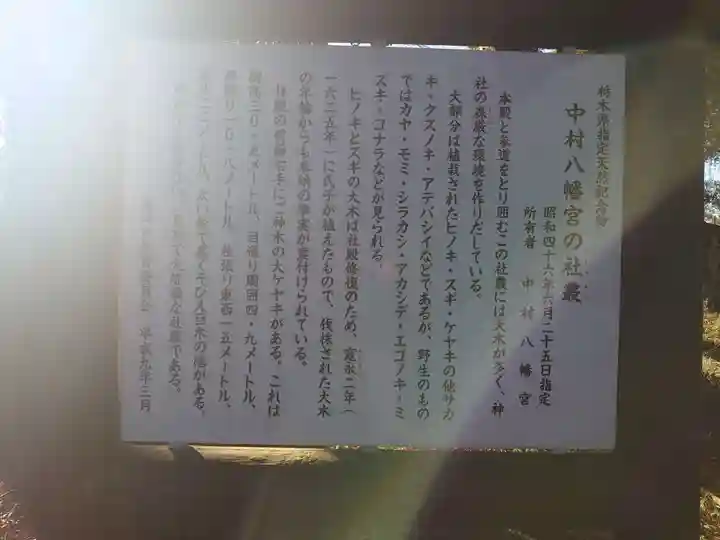 栃木県指定天然記念物
中村八幡宮の社叢
昭和四十六年六月二十五日指定
所有者 中村八幡宮
本殿と参道をとり囲むこの社叢には大木が多く、神
社の森厳な環境を作りだしている。
大部分は植栽されたヒノキ・スギ・ケヤキの他サカ
キ・クスノキ・アテバシイなどであるが、野生のもの
ではカヤ・モミ・シラカシ・アカシデ・エゴノキ・ミ
ズキ・コナラなどが見られる。
ヒノキとスギの大木は社殿修復のため、寛永二年(
一六二五年)に氏子が植えたもので、伐採された大木
の年輪からも奉納の事実が裏付けられている。
ご神木の大ケヤキがある。これは
三〇・九メートル、目通り周囲四・九メートル、
一〇・八メートル、枝張り東西一五メートル、
メートル
な社叢である。
平成九年三月